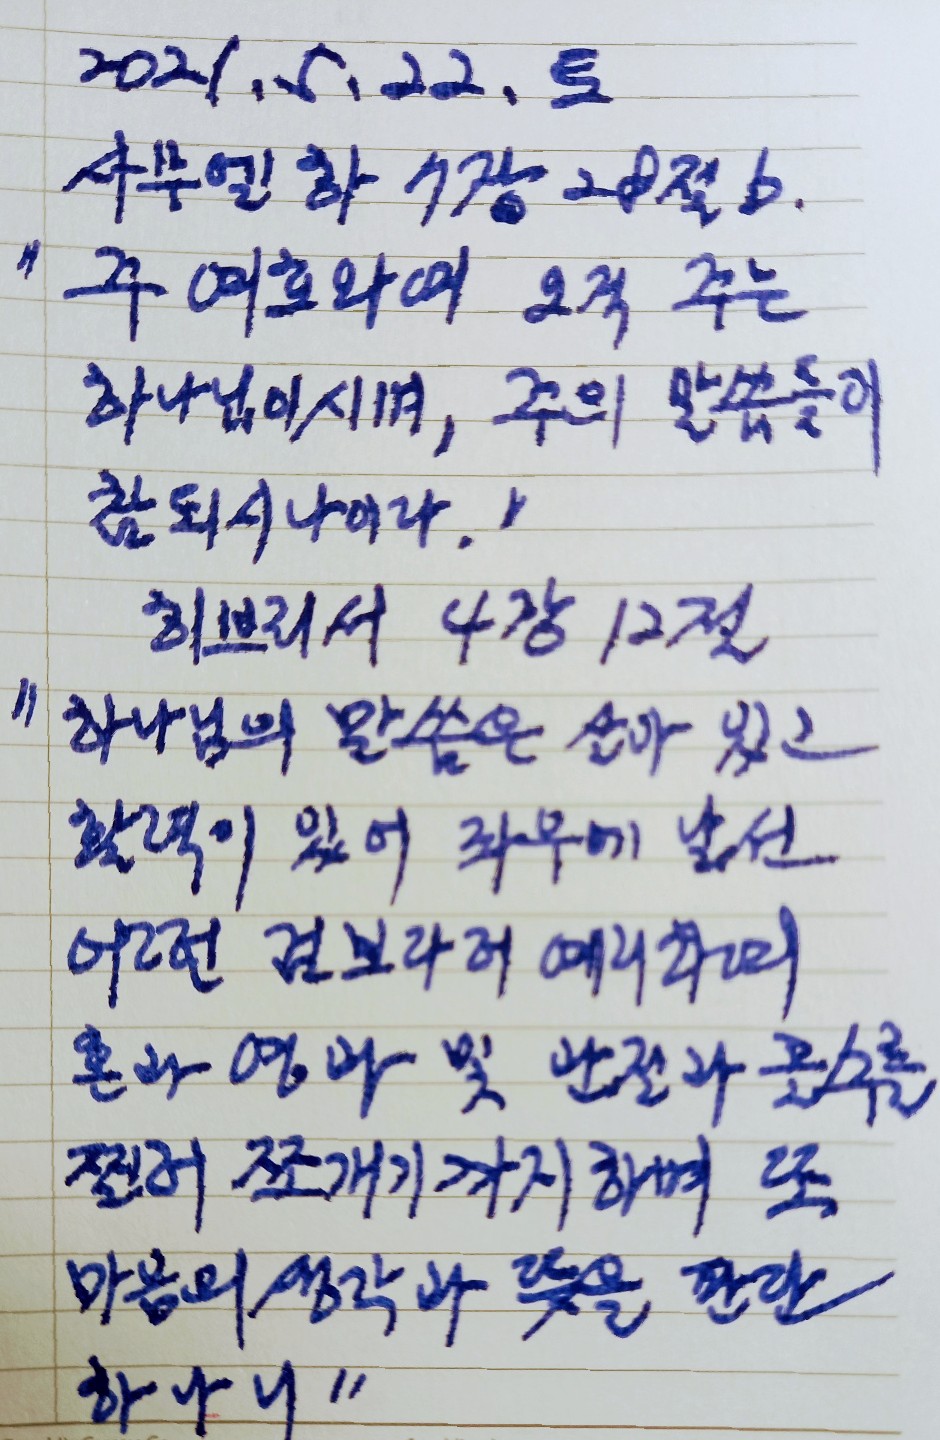 2021.5.22.토
사무엘 하 7장 28절 b.
" 주 여호와여 오직 주는
하나님이시며, 주의 말씀들이
참되시나이다."
히브리서 4장 12절
" 하나님의 말씀은 살아 있고
활력이 있어 좌우에 날선
어떤 검보다 예리하며
혼과 영과 및 관절과 골수를
찔러 쪼개기까지 하며 또
마음의 생각과 뜻을 판단
하나니"